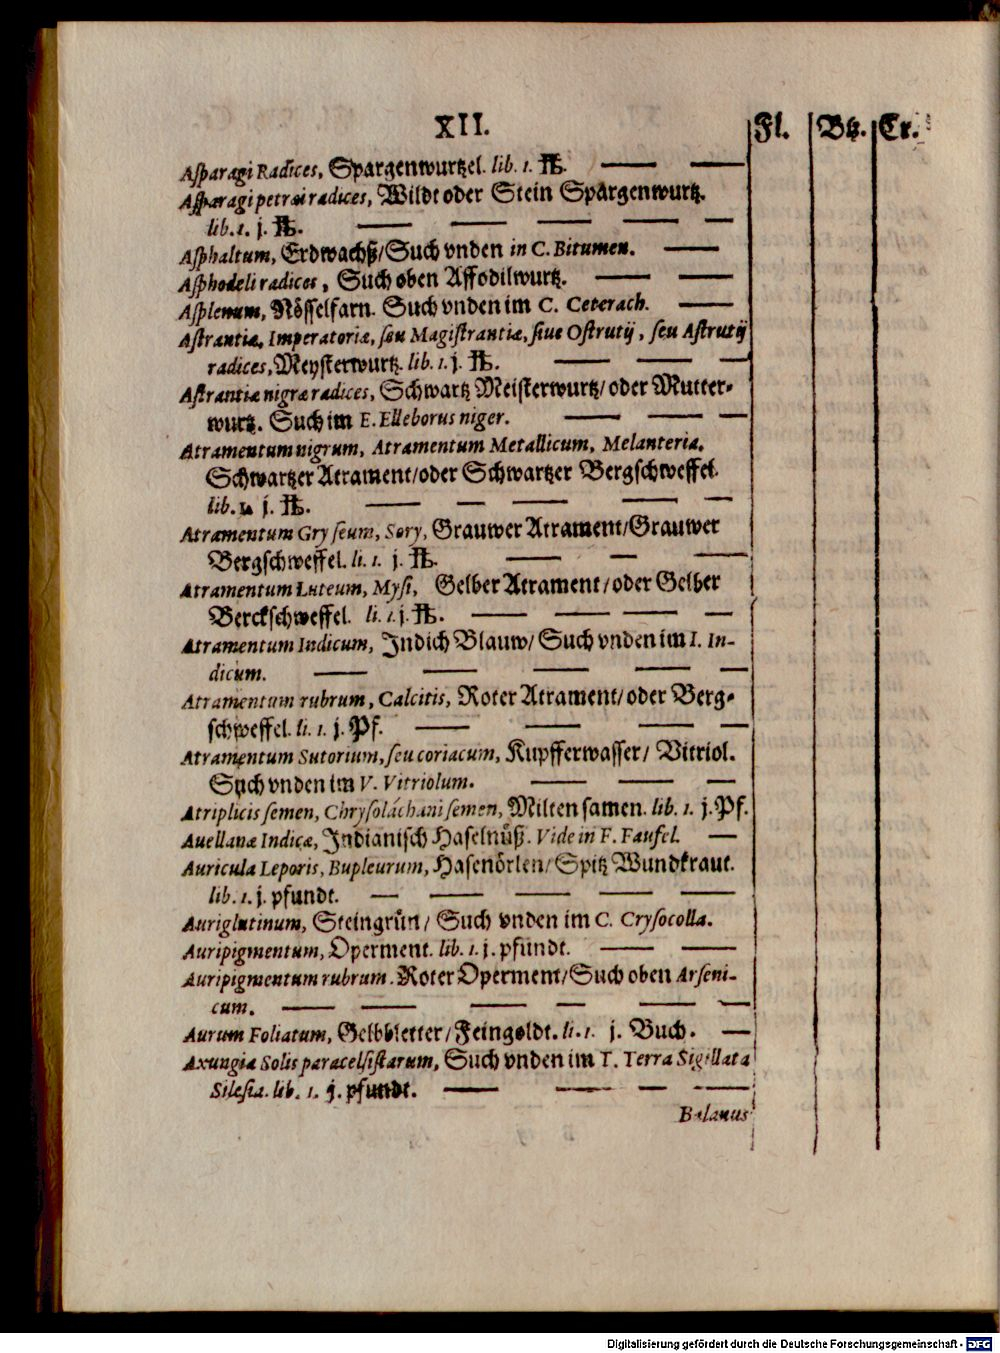 XII. Fl. Btz. Cr.
Asparagi Radices, Spargenwurtzel. lib. 1. ℔. — —
Asparagi petræi radices, Wildt oder Stein Spargenwurtz.
lib. 1. j. ℔. — — — — —
Asphaltum, Erdwachß/Such vnden in C. Bitumen. —
Asphodeli radices, Such oben Affodilwurtz. — —
Asplenum, Nösselfarn. Such vnden im C. Ceterach. —
Astrantiæ, Imperatoriæ, seu Magistrantiæ, siue Ostrutij, seu Astrutij
radices, Meysterwurtz. lib. 1. j. ℔. — — —
Astrantiæ nigræ radices, Schwartz Meisterwurtz/oder Mutter-
wurtz. Such im E. Elleborus niger. — — —
Atramentum nigrum, Atramentum Metallicum, Melanteria.
Schwartzer Atrament/oder Schwartzer Bergschweffel.
lib. 1. j. ℔. — — — — —
Atramentum Gryseum, Sory, Grauwer Atrament/Grauwer
Bergschweffel. li. 1. j. ℔. — — —
Atramentum Luteum, Mysi, Gelber Atrament/oder Gelber
Berckschweffel. li. 1. j. ℔. — — — —
Atramentum Indicum, Indich Blauw/Such vnden im I. In-
dicum. — — — — —
Atramentum rubrum, Calcitis, Roter Atrament/oder Berg-
schweffel. li. 1. j. Pf. — — — —
Atramentum Sutorium, seu coriacum, Kupfferwasser/ Vitriol.
Such vnden im V. Vitriolum. — — —
Atriplicis semen, Chrysoláchani semen, Milten samen. lib. 1. j. Pf.
Auellanæ Indicæ, Indianisch Haselnüß. Vide in F. Faufel. —
Auricula Leporis, Bupleurum, Hasenörlen/Spitz Wundkraut.
lib. 1. j. pfundt. — — — — —
Auriglutinum, Steingrün/ Such vnden im C. Crysocolla.
Auripigmentum, Operment. lib. 1. j. pfundt. — —
Auripigmentum rubrum. Roter Operment/Such oben Arseni-
cum. — — — — — —
Aurum Foliatum, Gelbbletter/Feingoldt. li. 1. j. Buch. —
Axungia Solis paracelsistarum, Such vnden im T. Terra Sigillata
Silesia. lib. 1. j. pfundt. — — — —
Balanus
Digitalisierung gefördert durch die Deutsche Forschungsgemeinschaft - DFG